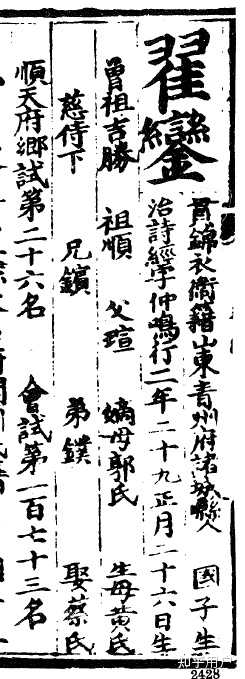 翟鑾
貫錦衣衛籍山東青州府諸城縣人 國子生
治詩經字仲鳴行二年二十九正月二十六日生
曾祖吉勝 祖順 父瑄 嫡母郭氏 生母黃氏
慈侍下 兄鎖 弟鏷 娶蔡氏
順天府鄉試第二十六名 會試第一百七十三名
知乎用户
2428